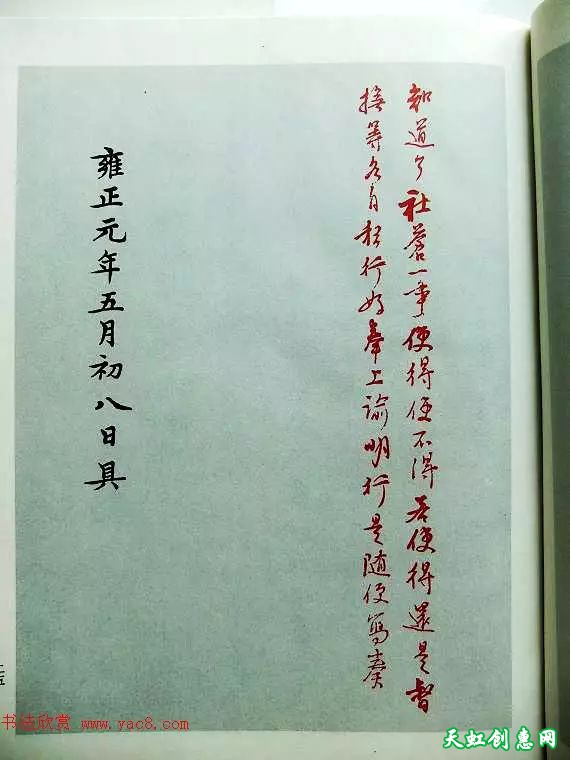 知道了社蒼一事使得使不得若使得還是督
撫等各自摺行好奉上諭明行是隨便寫奏
雍正元年五月初八日具
二五
书法欣赏 www.yac8.com
天虹创惠网